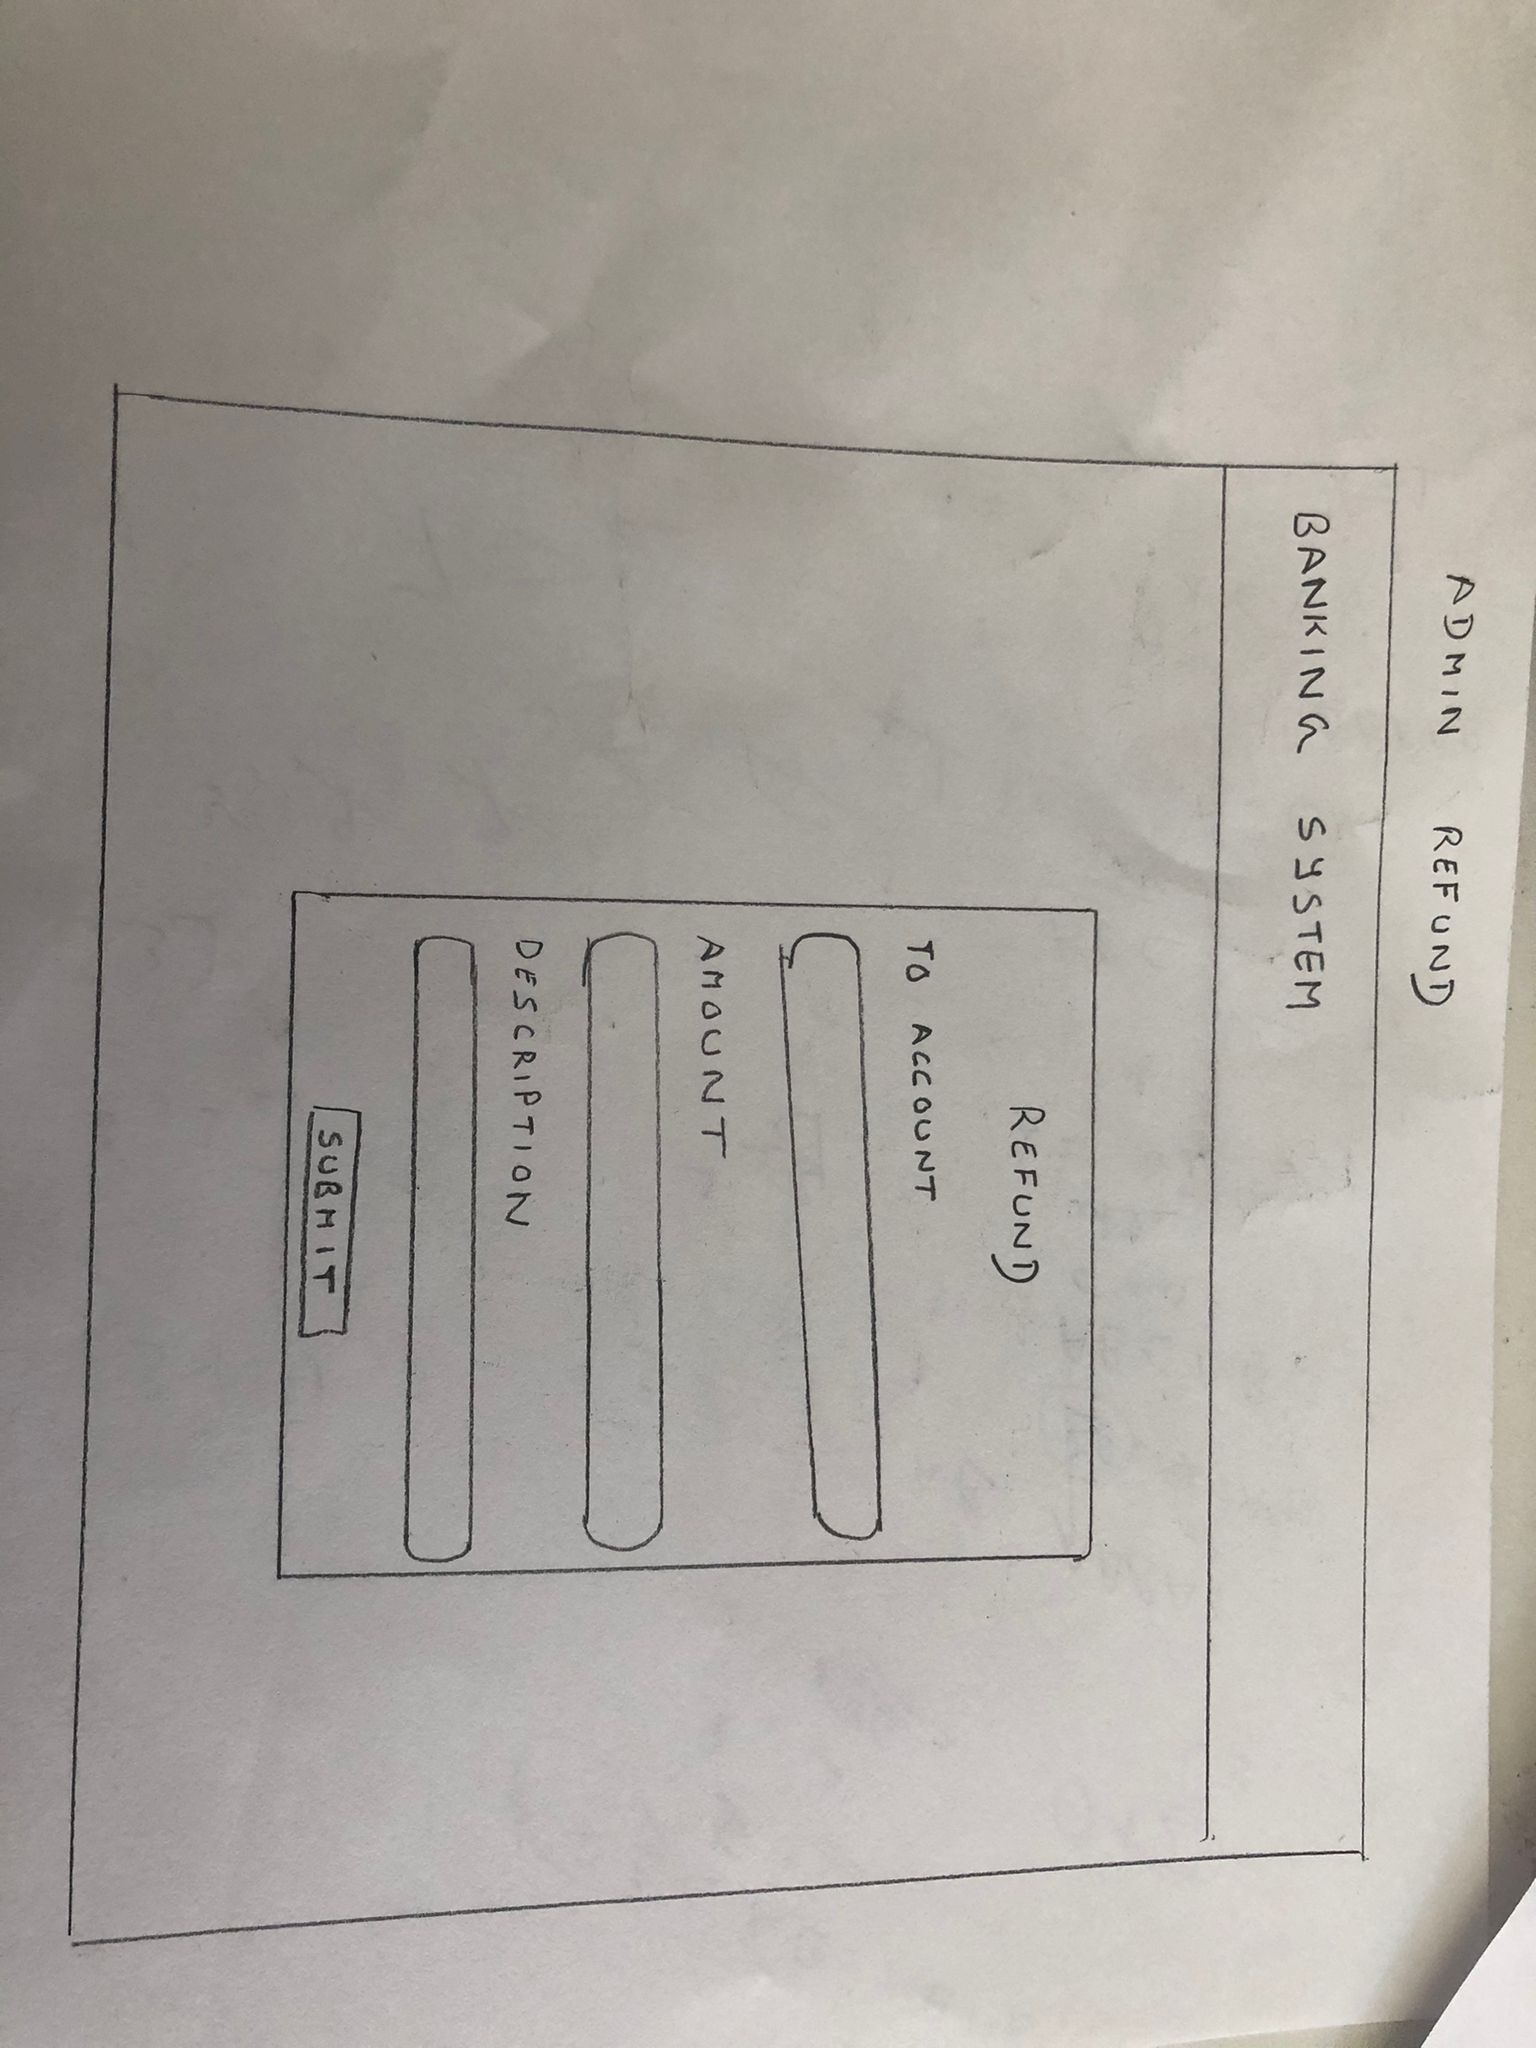 ADMIN REFUND
BANKING SYSTEM
REFUND
TO ACCOUNT
AMOUNT
DESCRIPTION
SUBMIT